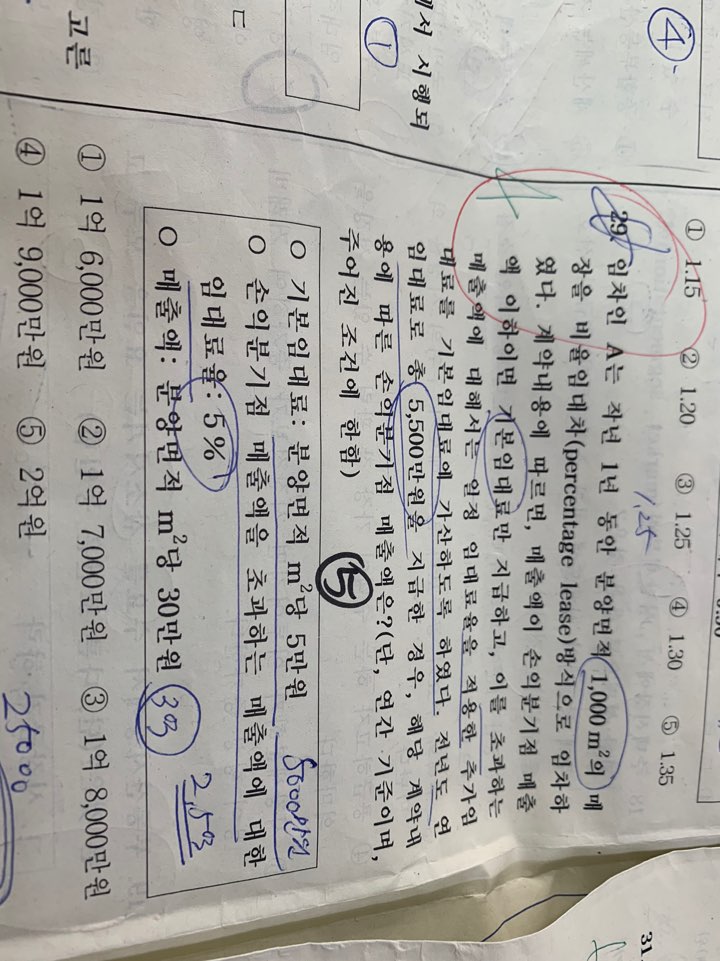 ④
에서 시행되
①
ㄷ
고른
① 1.15 ② 1.20 ③ 1.25 ④ 1.30 ⑤ 1.35
1.25
29. 임차인 A는 작년 1년 동안 분양면적 1,000 m²의 매
장을 비율임대차(percentage lease)방식으로 임차하
였다. 계약내용에 따르면, 매출액이 손익분기점 매출
액 이하이면 기본임대료만 지급하고, 이를 초과하는
매출액에 대해서는 일정 임대료율을 적용한 추가임
대료를 기본임대료에 가산하도록 하였다. 전년도 연
임대료로 총 5,500만원을 지급한 경우, 해당 계약내
용에 따른 손익분기점 매출액은?(단, 연간 기준이며,
주어진 조건에 한함)
⑤
○ 기본임대료: 분양면적 m²당 5만원 5000만원
○ 손익분기점 매출액을 초과하는 매출액에 대한
임대료율: 5%
○ 매출액: 분양면적 m²당 30만원 3억
2.5억
① 1억 6,000만원 ② 1억 7,000만원 ③ 1억 8,000만원
④ 1억 9,000만원 ⑤ 2억원
25000
31.